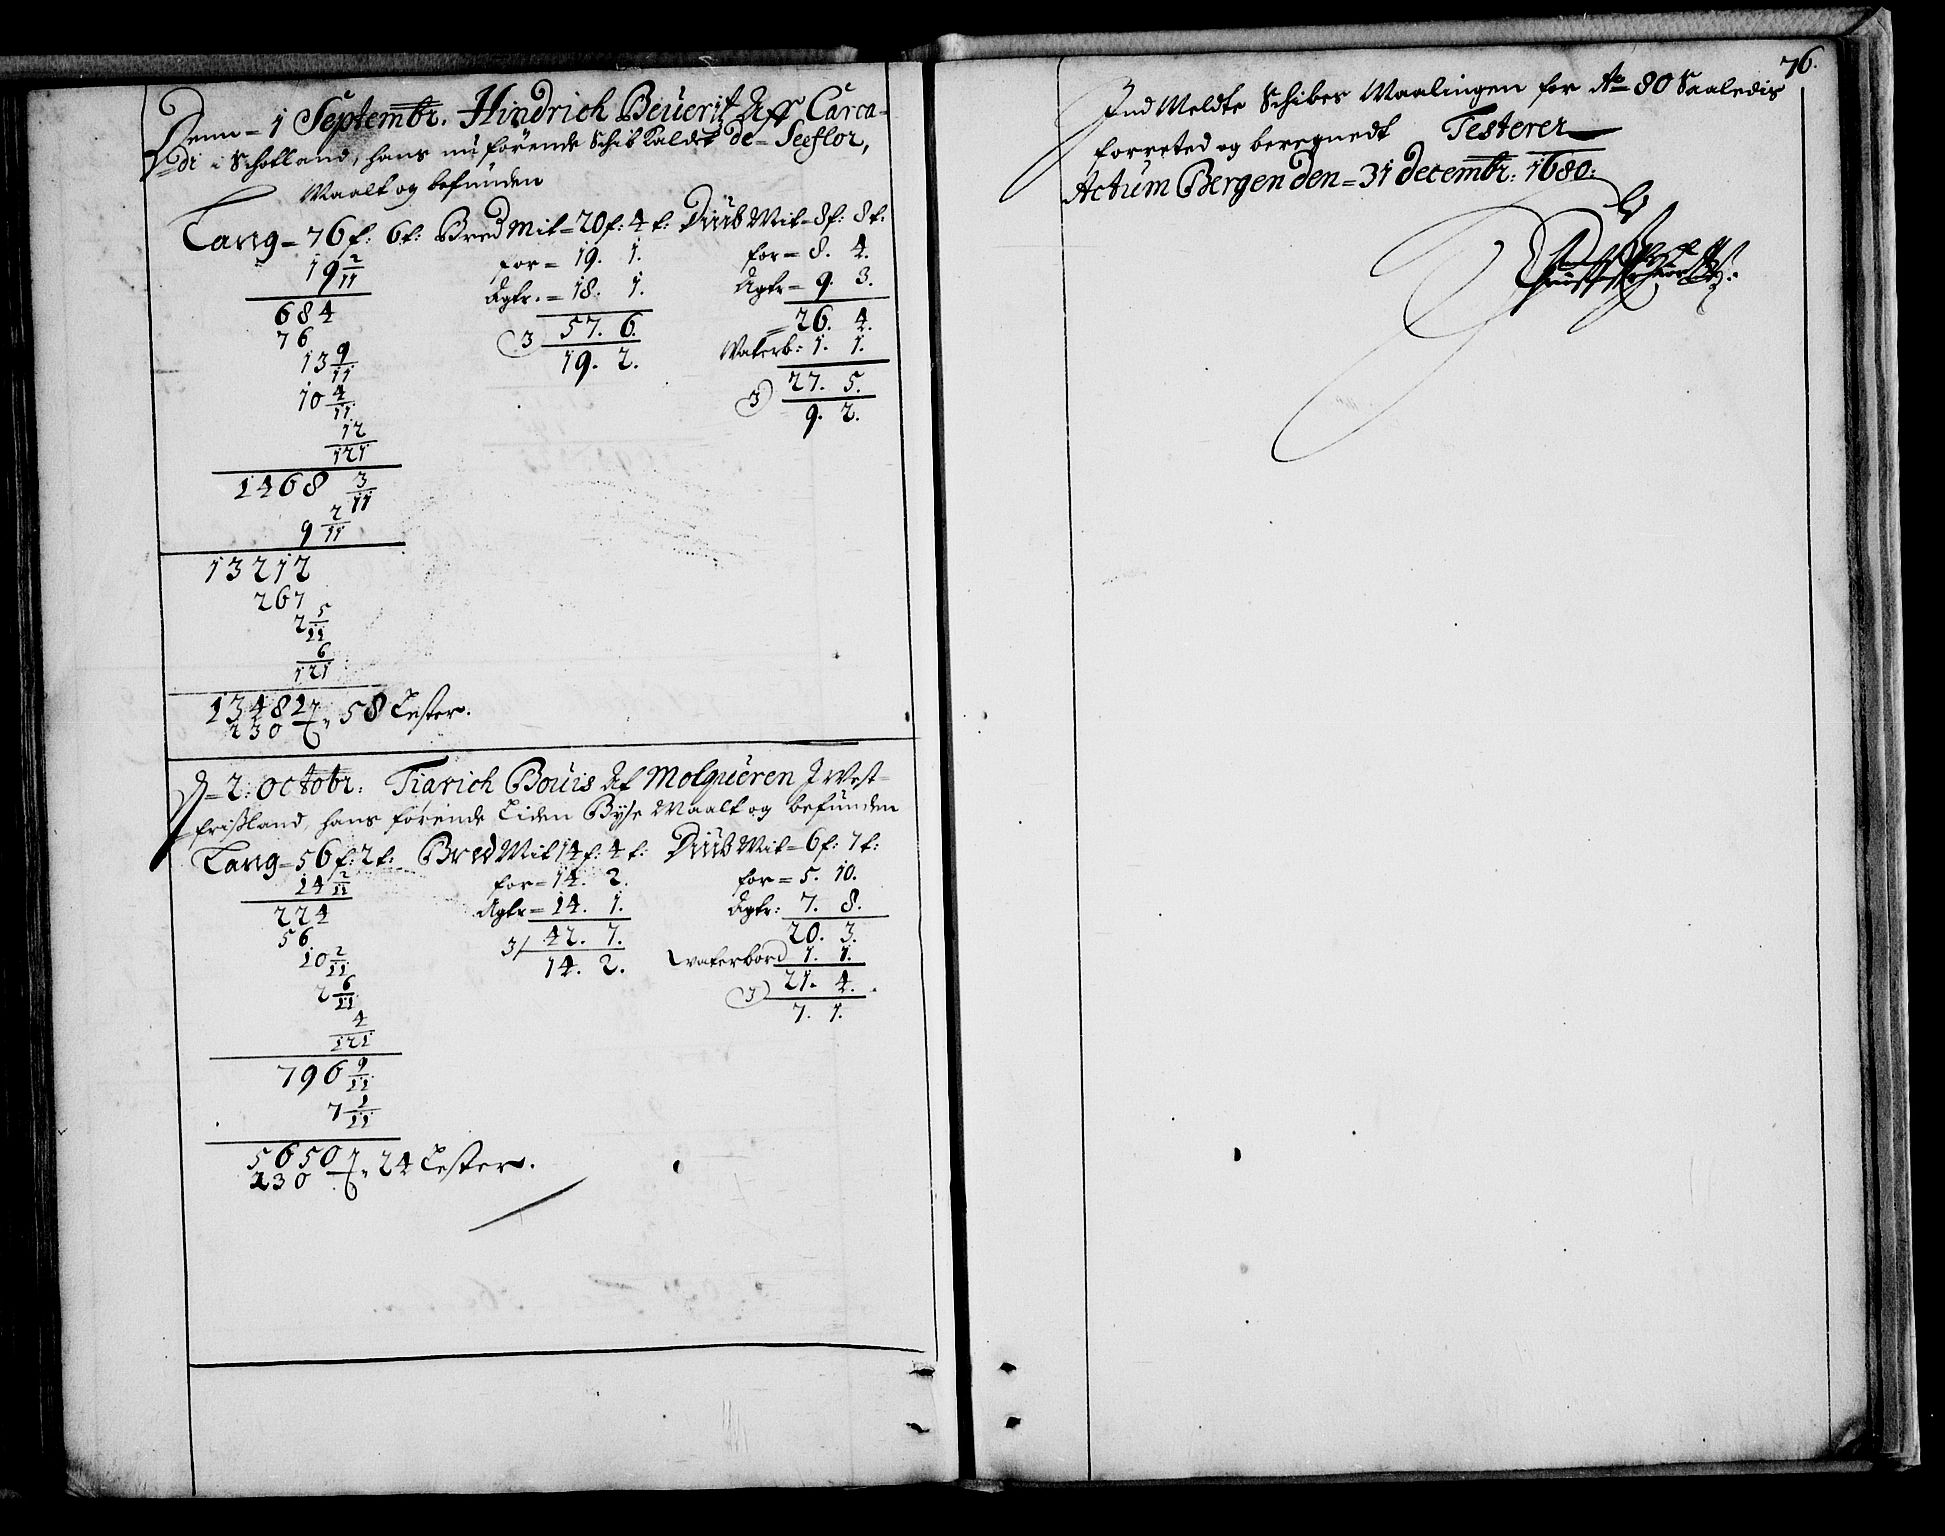 Denn = 1 Septembr. Hindrich Beuerit Aff Carca-
di i Schottland, hans nu förende Schib Kaldet de = Seeflor,
Maalt og befunden
Lang = 76 f: 6 t: Bred Mit = 20 f: 4 t: Diüb Mit = 8 f: 8 t:
19 2/11 for = 19. 1. for = 8. 4.
Agtr. = 18. 1. Agtr = 9. 3.
684 3 57. 6. = 26. 4.
76 19. 2. Waterb: 1. 1.
13 9/11 27. 5.
10 4/11 3 9. 2.
12/121
1468 3/11
9 2/11
13212
267
2 5/11
6/121
13482
230 58 Lester.
D = 2: Octobr: Tiarich Bouis Af Molqueren J West-
frißland, hans førende Liden Byse Maalt og befunden
Lang = 56 f: 2 t: Bred Mit 14 f: 4 t: Diüb Mit = 6 f: 7 t:
14 2/11 for = 14. 2. for = 5. 10.
224 Agtr = 14. 1. Agtr: 7. 8.
56 3 42. 7. 20. 3.
10 2/11 14. 2. Waterbord 1. 1.
2 6/11 3 21. 4.
4/121 7. 1.
796 9/11
7 1/11
5650
230 24 Lester.
76.
Ind Meldte Schibes Maalingen for Ao 80 Saaledis
forreted og beregnedt Testerer
Actum Bergen den = 31 decembr: 1680: